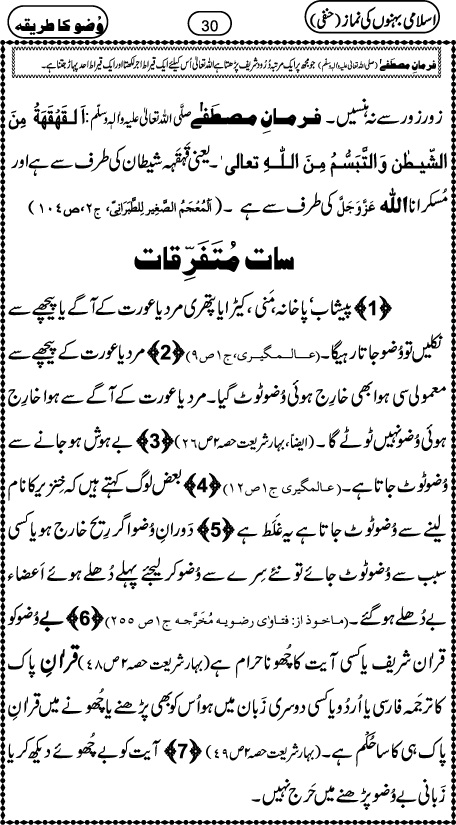 اسلامی بہنوں کی نماز (حنفی)
30
وُضو کا طریقہ
فرمانِ مصطفےٰ (صلی اللہ تعالیٰ علیہ واٰلہٖ وسلّم) جو مجھ پر ایک مرتبہ دُرُود شریف پڑھتا ہے اللہ تعالیٰ اُس کیلئے ایک قیراط اجر لکھتا اور ایک قیراط احد پہاڑ جتنا ہے۔
زور زور سے نہ ہنسیں۔ فرمانِ مصطفٰے صلَّی اللہ تعالیٰ علیہ واٰلہٖ وسلّم: اَلقَھْقَھَۃُ مِنَ
الشَّیطٰن وَالتَّبَسُّمُ مِنَ اللہِ تعالیٰ ۔ یعنی قَہقَہہ شیطان کی طرف سے ہے اور
مُسکرانا اللہ عَزَّوَجَلَّ کی طرف سے ہے ۔ (اَلْمُعْجَمُ الصَّغِیر لِلطَّبَرَانِیّ، ج۲، ص۱۰۴)
سات مُتَفَرِّقات
﴿1﴾ پیشاب، پاخانہ، مَنی، کیڑا یا پتھری مرد یا عورت کے آگے یا پیچھے سے
نکلیں تو وُضو جاتا رہیگا۔ (عالمگیری، ج۱ ص۹) ﴿2﴾ مرد یا عورت کے پیچھے سے
معمولی سی ہوا بھی خارِج ہوئی وُضو ٹوٹ گیا۔ مرد یا عورت کے آگے سے ہوا خارِج
ہوئی وُضو نہیں ٹوٹے گا ۔ (ایضاً، بہار شریعت حصہ ۲ ص۲۶) ﴿3﴾ بے ہوش ہو جانے سے
وُضو ٹوٹ جاتا ہے۔ (عالمگیری ج۱ ص۱۲) ﴿4﴾ بعض لوگ کہتے ہیں کہ خِنزیر کا نام
لینے سے وُضو ٹوٹ جاتا ہے یہ غَلَط ہے ﴿5﴾ دَورانِ وُضو اگر رِیح خارِج ہو یا کسی
سبب سے وُضو ٹوٹ جائے تو نئے سِرے سے وُضو کر لیجئے پہلے دُھلے ہوئے اَعضاء
بے دُھلے ہو گئے۔ (ماخوذ از: فتاوٰی رضویہ مُخَرَّجہ ج۱ ص ۲۵۵) ﴿6﴾ بے وُضو کو
قراٰن شریف یا کسی آیت کا چُھونا حرام ہے (بہار شریعت حصہ ۲ ص ۴۸) قراٰنِ پاک
کا ترجَمہ فارسی یا اُردو یا کسی دوسری زَبان میں ہو اُس کو بھی پڑھنے یا چُھونے میں قراٰنِ
پاک ہی کا سا حُکْم ہے۔ (بہار شریعت حصہ ۲ ص ۴۹) ﴿7﴾ آیت کو بے چُھوئے دیکھ کر یا
زَبانی بے وُضو پڑھنے میں حَرَج نہیں۔